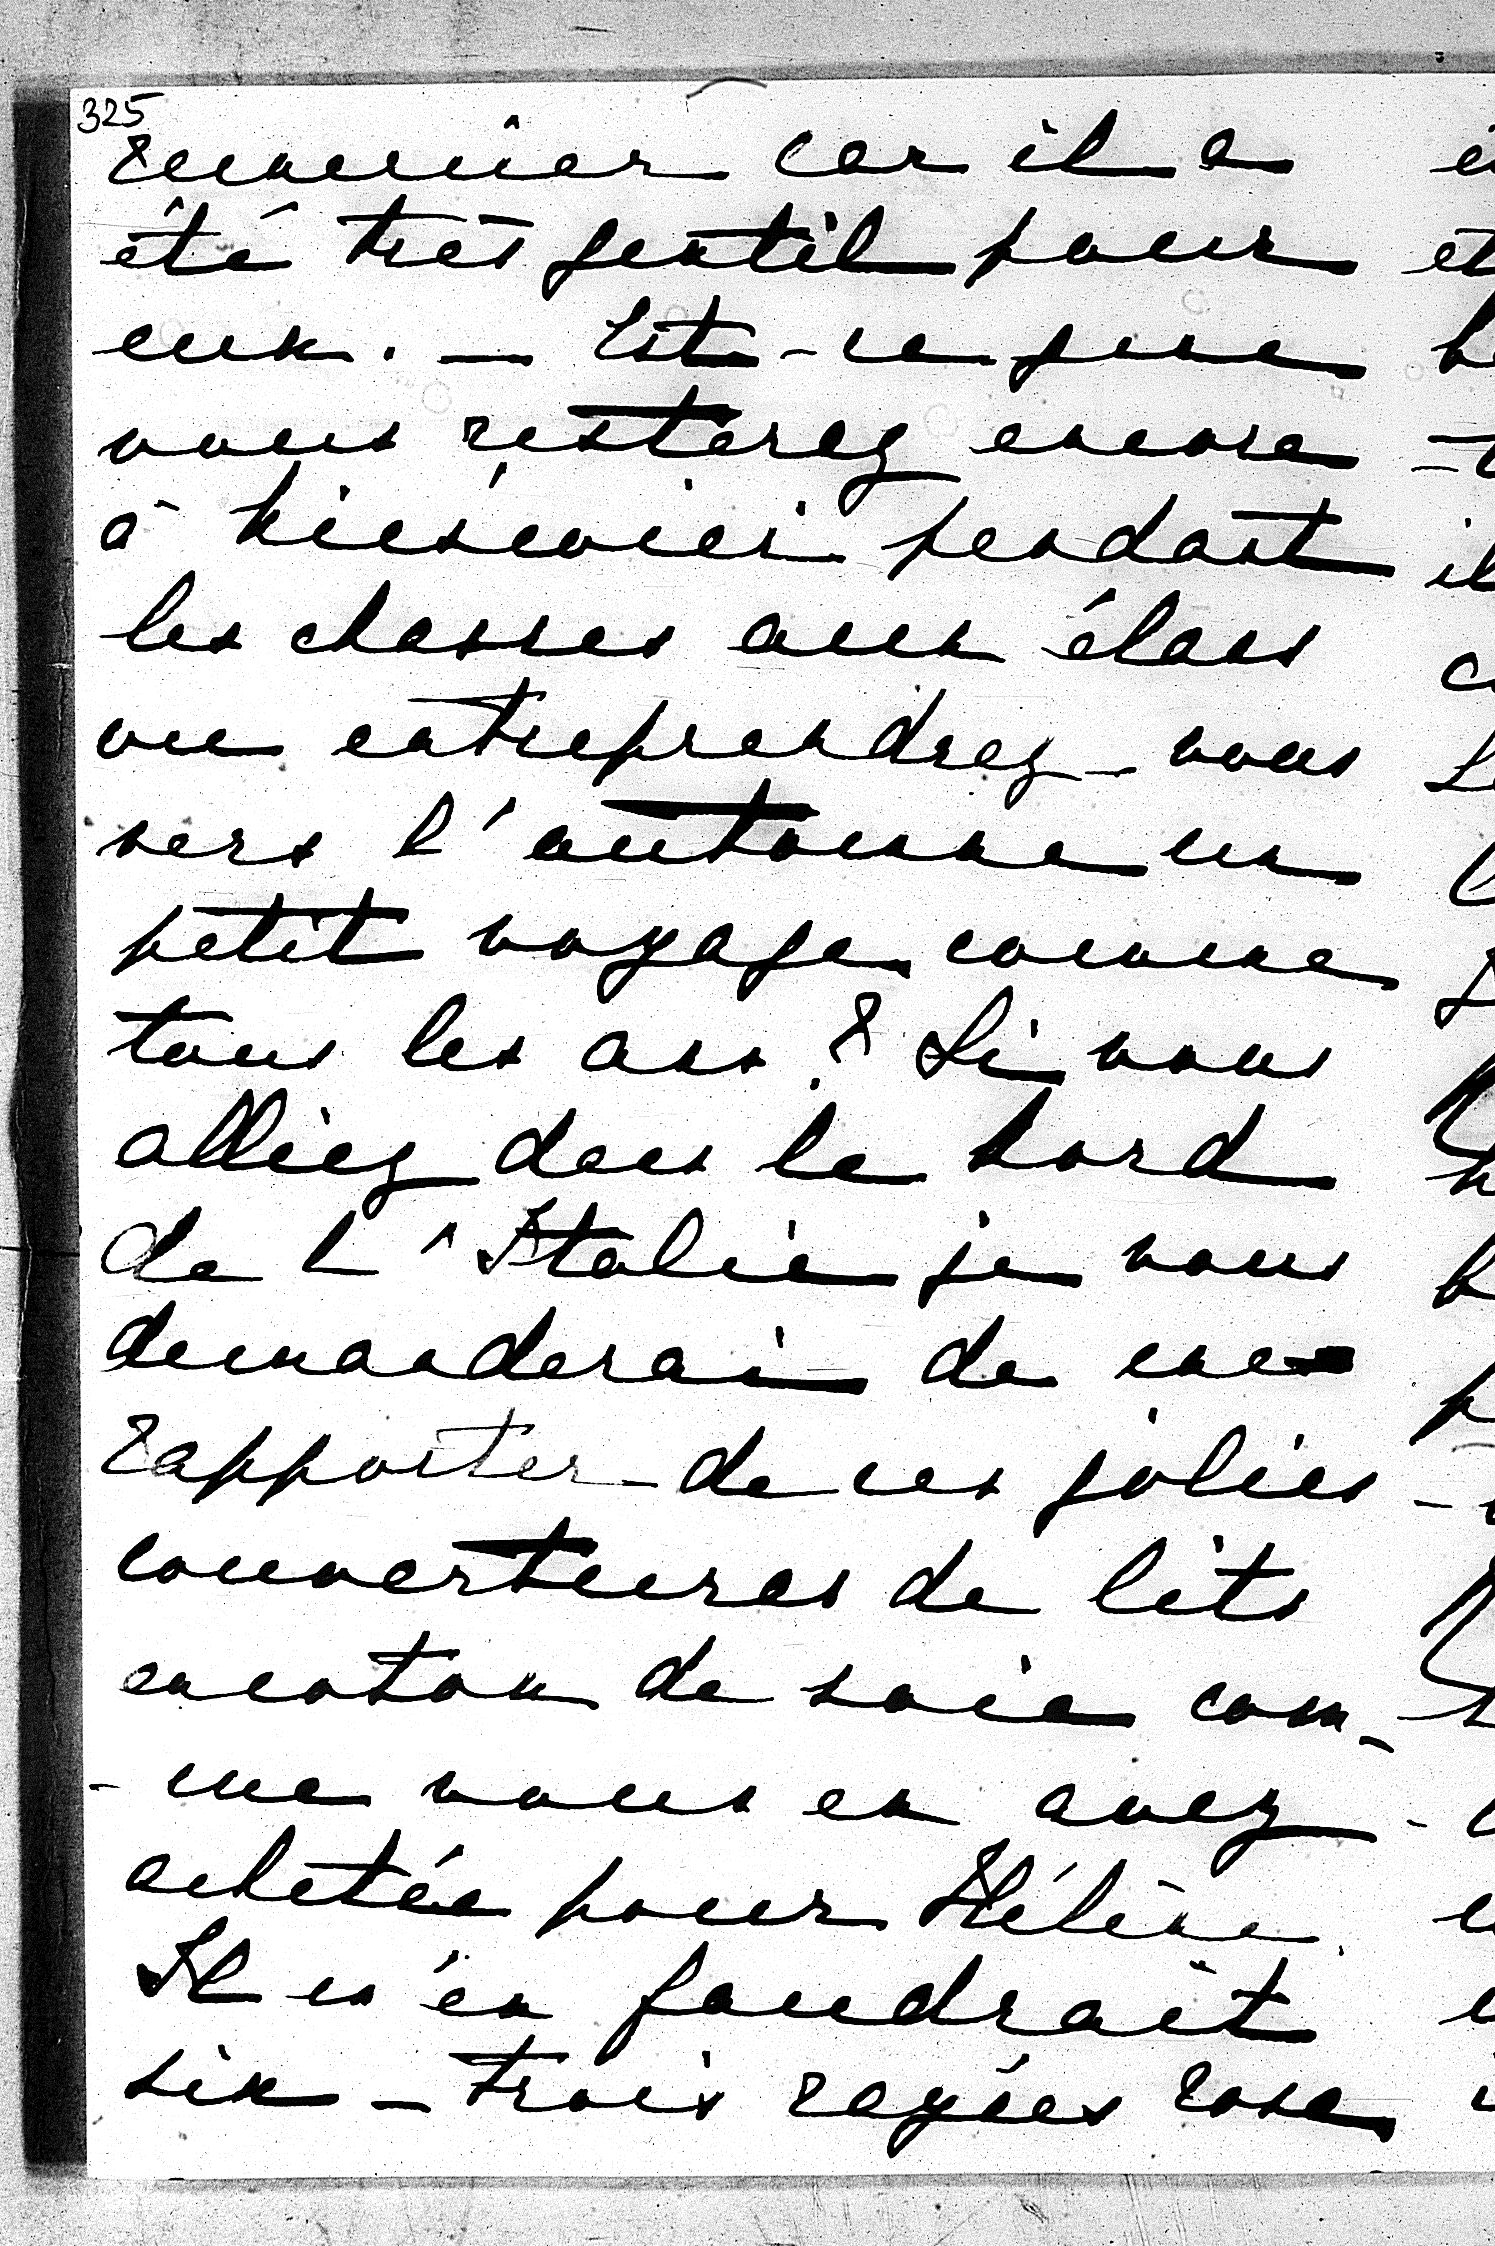 325
remercier car il a
été très gentil pour
eux. — Est-ce que
vous resterez encore
à pendant
les chasses aux élans
ou entreprendrez-vous
vers l'automne un
petit voyage comme
tous les ans? Si vous
alliez dans le Nord
de l'Italie je vous
demanderai de me
rapporter de ces jolies
couvertures de lits
en coton de soie com-
-me vous en avez
achetée pour Hélène.
Il m'en faudrait
six — trois rayées rose